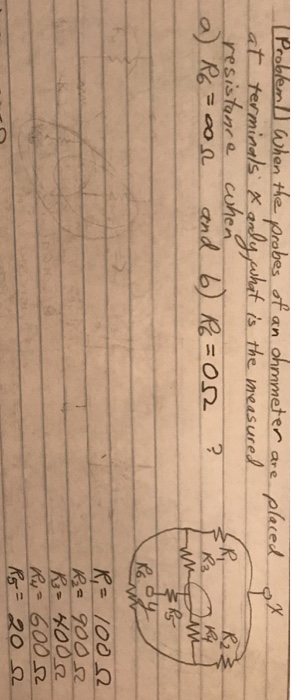 [Problem 1] When the probes of an ohmmeter are placed
at terminals x and y, what is the measured
resistance when
a) R6 = ∞Ω and b) R6 = 0Ω ?
x
R1
R2
R3
R4
R5
y
R6
R1 = 100 Ω
R2 = 900 Ω
R3 = 400 Ω
R4 = 600 Ω
R5 = 20 Ω